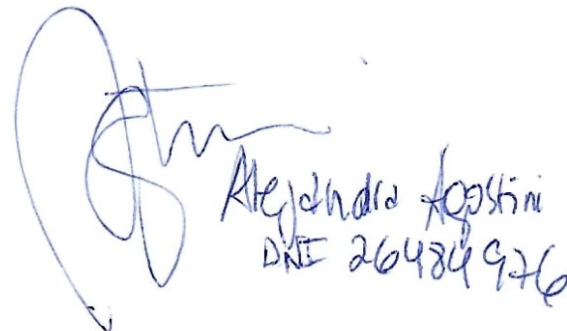 Alejandra Agostini
DNI 26484976